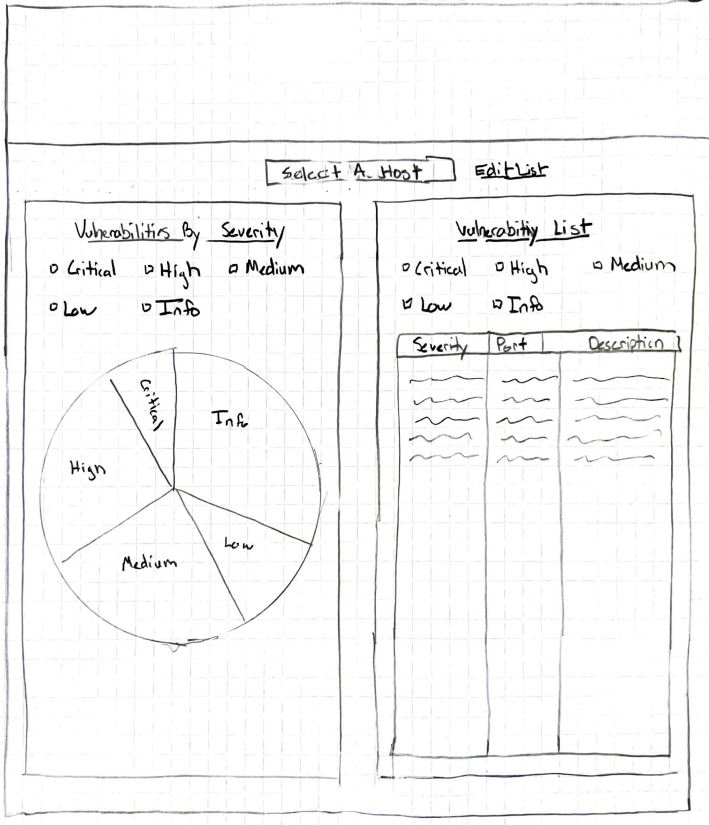 Select A Host Edit List
Vulnerabilities By Severity
Critical High Medium
Low Info
Critical
Info
High
Low
Medium
Vulnerability List
Critical High Medium
Low Info
Severity Port Description